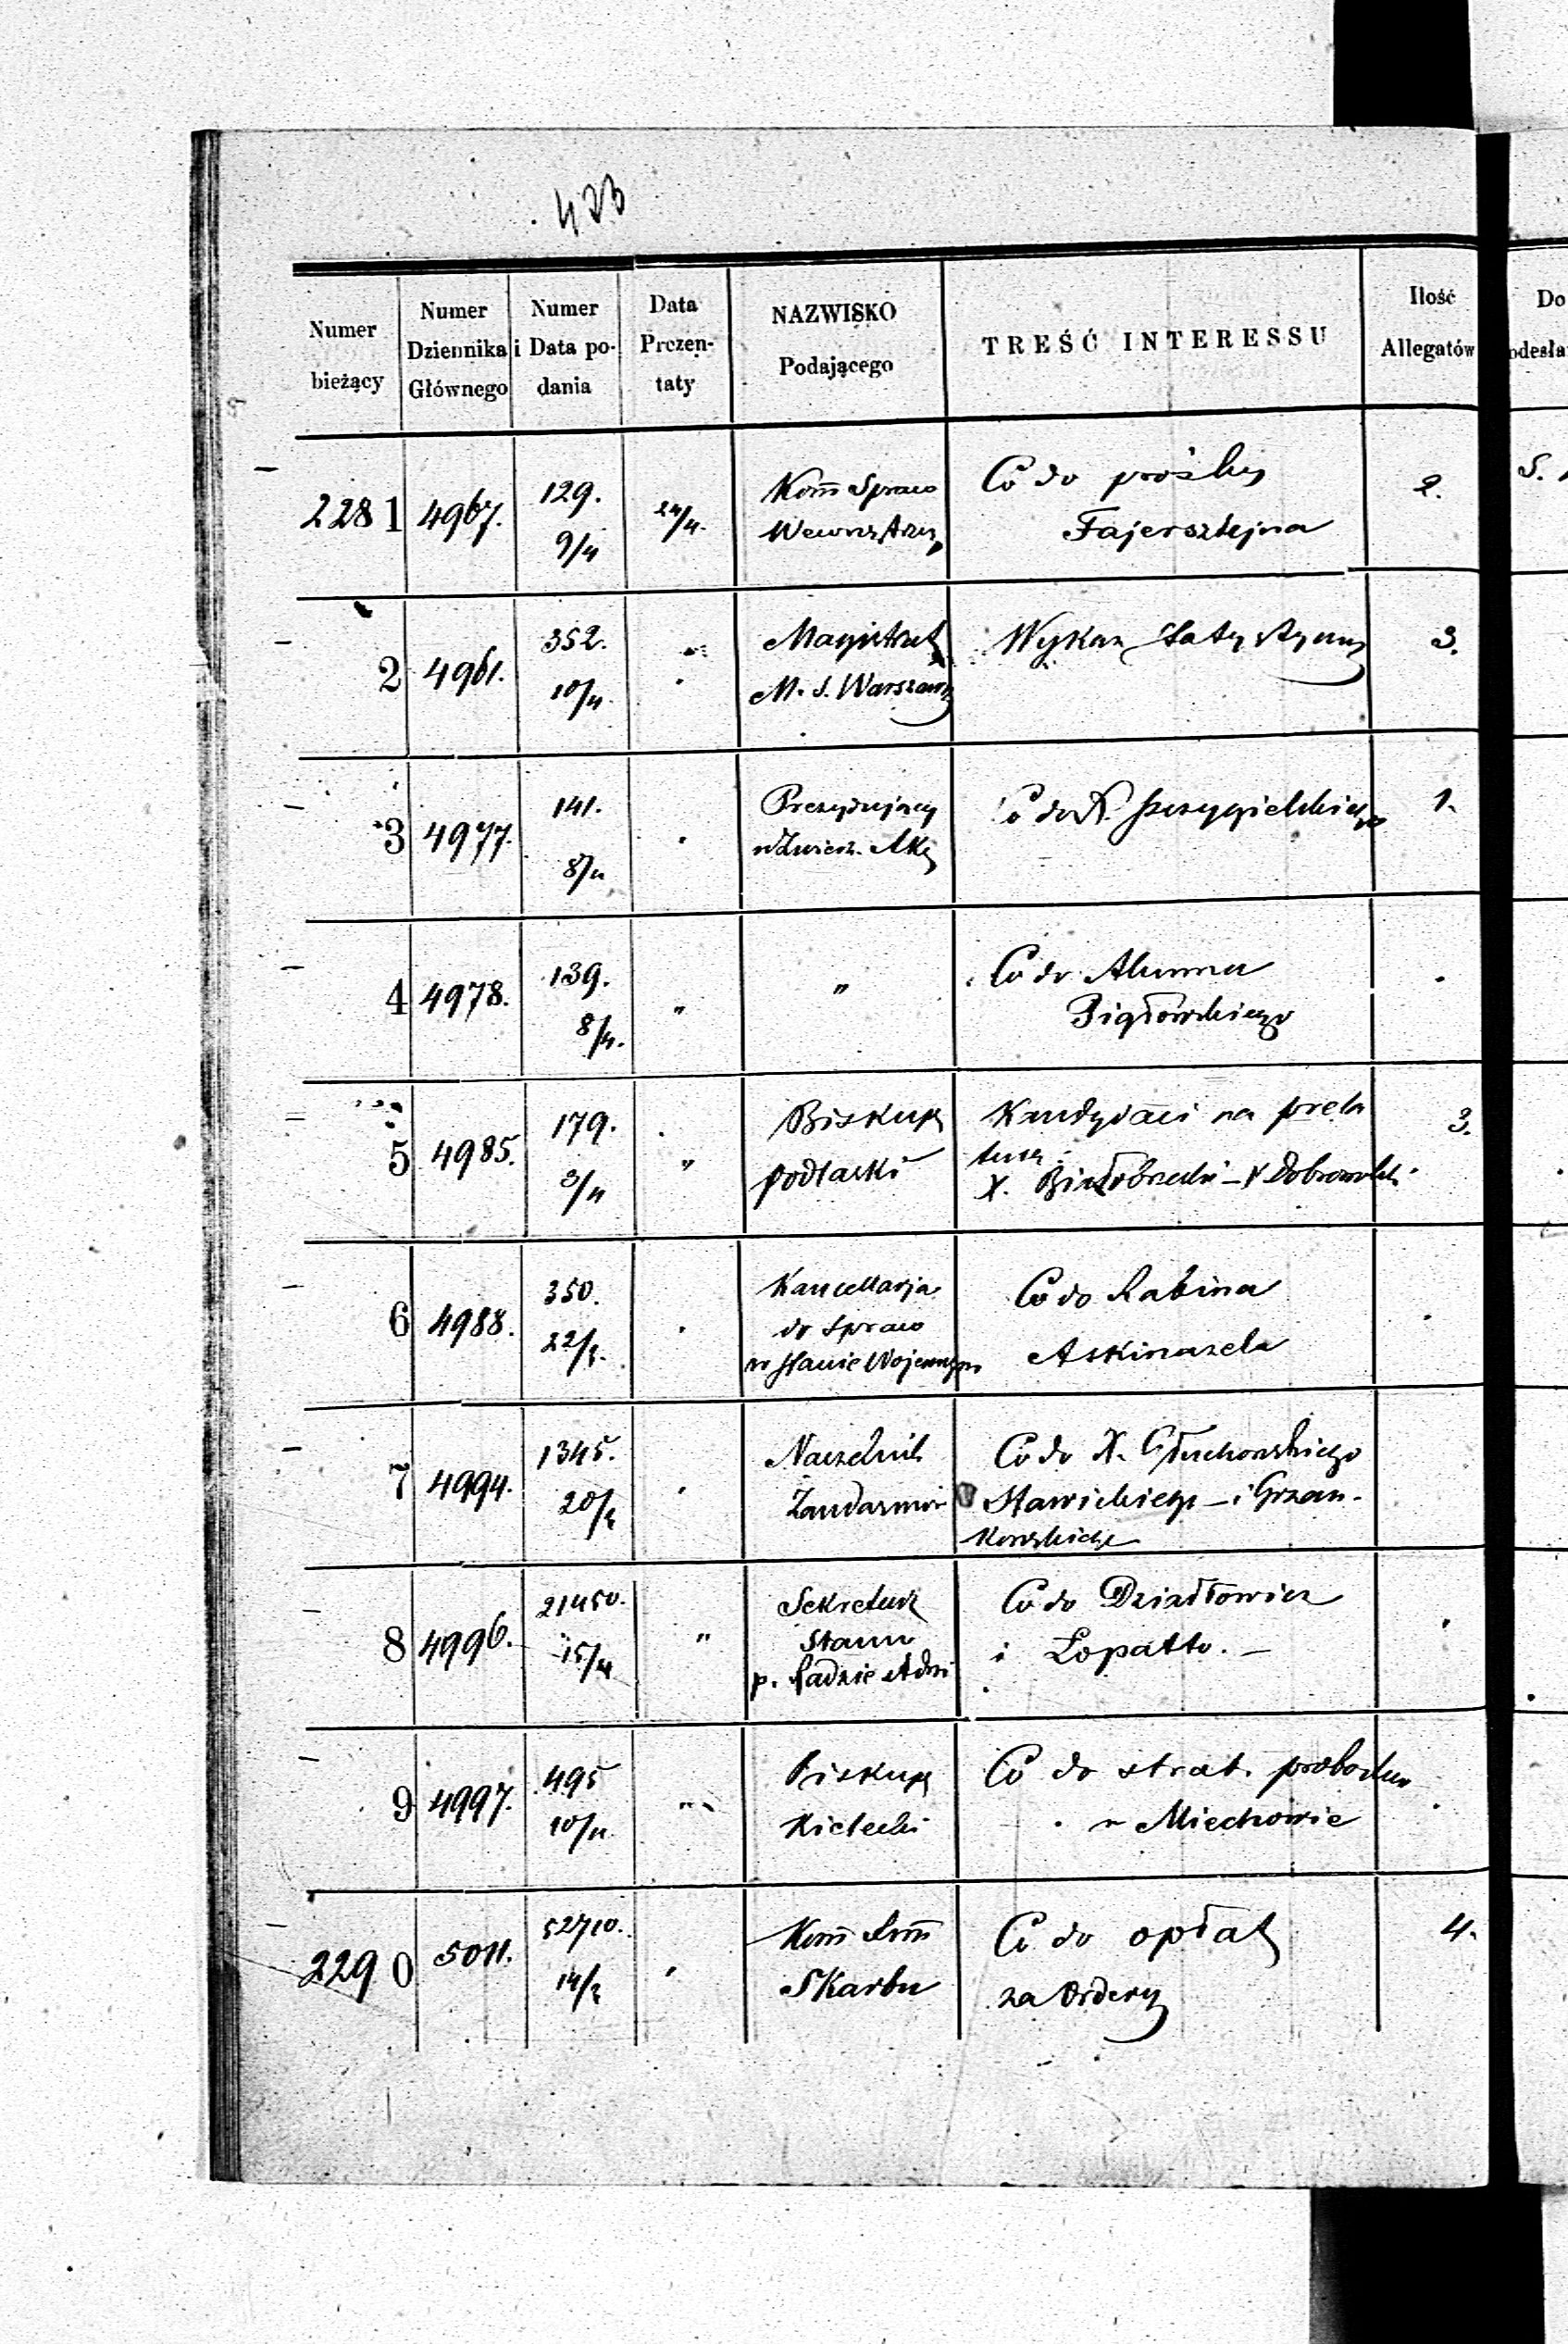 423
Numer bieżący
Numer Dziennika Głównego
Numer i Data podania
Data Prezentaty
NAZWISKO Podającego
TREŚĆ INTERESSU
Ilość Allegatów
Do odesła
2281 4967. 129. 9/4 24/4. Kom̄ Spraw Co do prośby 2.
Wewnętrzn Fajersztejna
2 4961. 352. 10/4 Magistrat Wykaz 3.
M. S. Warszawy
3 4977. 141. 8/4 Prezydujący Co do X. Szczygielskiego 1.
4 4978. 139. 8/4. " " Co do Alumna
5 4985. 179. 3/4 " Biskup Kandydaci na prela 3.
podlaski turę:
X. Białobrzeski – X Dobrowolski
6 4988. 350. 22/3. Kancellarja Co do Rabina
do Spraw Askinazela
w stanie Wojennym
7 4994. 1345. 20/3 Naczelnik Co do X. Głuchowskiego
Żandarmów Stawickiego – i Grzan-
kowskiego
8 4996. 21450. 15/4 " Sekretarz Co do Dziadłowicz
Stanu i Łopatto. –
p. Radzie Adm
9 4997. 495 10/4 " Biskup Co do strat. probostwa
Kielecki w Miechowie
2290 5011. 52710. 14/3 Kom̄ Co do opłat 4.
Skarbu za Ordery